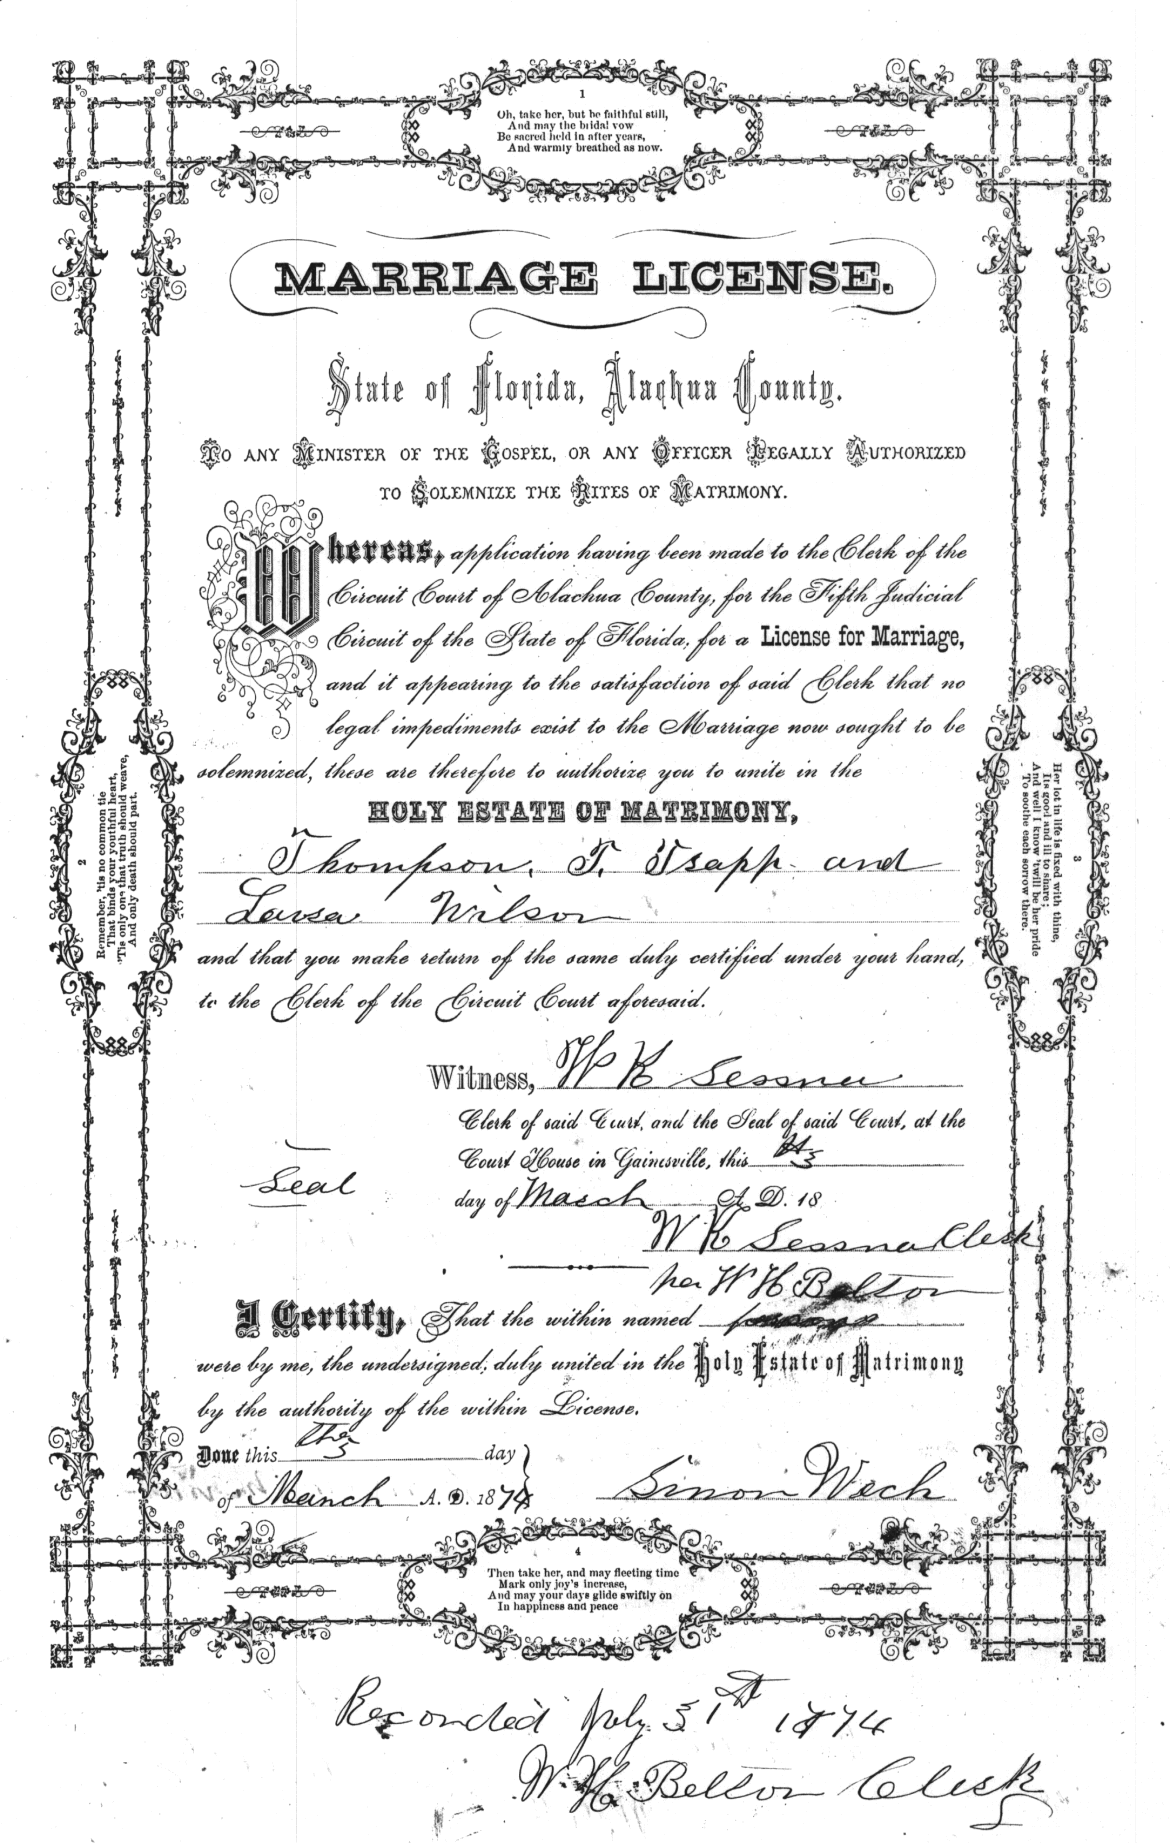 1
Oh, take her, but be faithful still,
And may the bridal vow
Be sacred held in after years,
And warmly breathed as now.
MARRIAGE LICENSE.
State of Florida, Alachua County.
TO ANY MINISTER OF THE GOSPEL, OR ANY OFFICER LEGALLY AUTHORIZED
TO SOLEMNIZE THE RITES OF MATRIMONY.
Whereas, application having been made to the Clerk of the
Circuit Court of Alachua County, for the Fifth Judicial
Circuit of the State of Florida, for a License for Marriage,
and it appearing to the satisfaction of said Clerk that no
legal impediments exist to the Marriage now sought to be
solemnized, these are therefore to authorize you to unite in the
HOLY ESTATE OF MATRIMONY,
Thompson. T. Tsapp and
Lavsa Wilson
and that you make return of the same duly certified under your hand,
to the Clerk of the Circuit Court aforesaid.
Witness, W K Sessna
Clerk of said Court, and the Seal of said Court, at the
Court House in Gainesville, this 5
Seal
day of March A. D. 18
W K Sessna Clerk
per W H Belton
I Certify, That the within named persons
were by me, the undersigned, duly united in the Holy Estate of Matrimony
by the authority of the within License.
Done this The 5 day
of March A. D. 1874 Simon Wech
2
Remember, 'tis no common tie
That binds your youthful heart,
'Tis only one that truth should weave,
And only death should part.
3
Her lot in life is fixed with thine,
Its good and ill to share;
And well I know 'twill be her pride
To soothe each sorrow there.
4
Then take her, and may fleeting time
Mark only joy's increase,
And may your days glide swiftly on
In happiness and peace
Recorded July 31st 1874
W. H. Belton Clerk